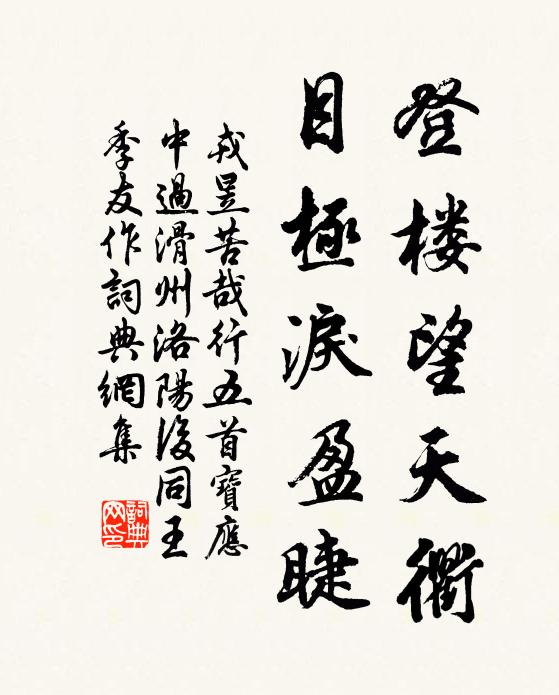 登楼望天衢
目極淚盈睫
戎昱苦哉行五首寶應
中過滑州洛陽後同王
季友作詞典網集
詞典网印